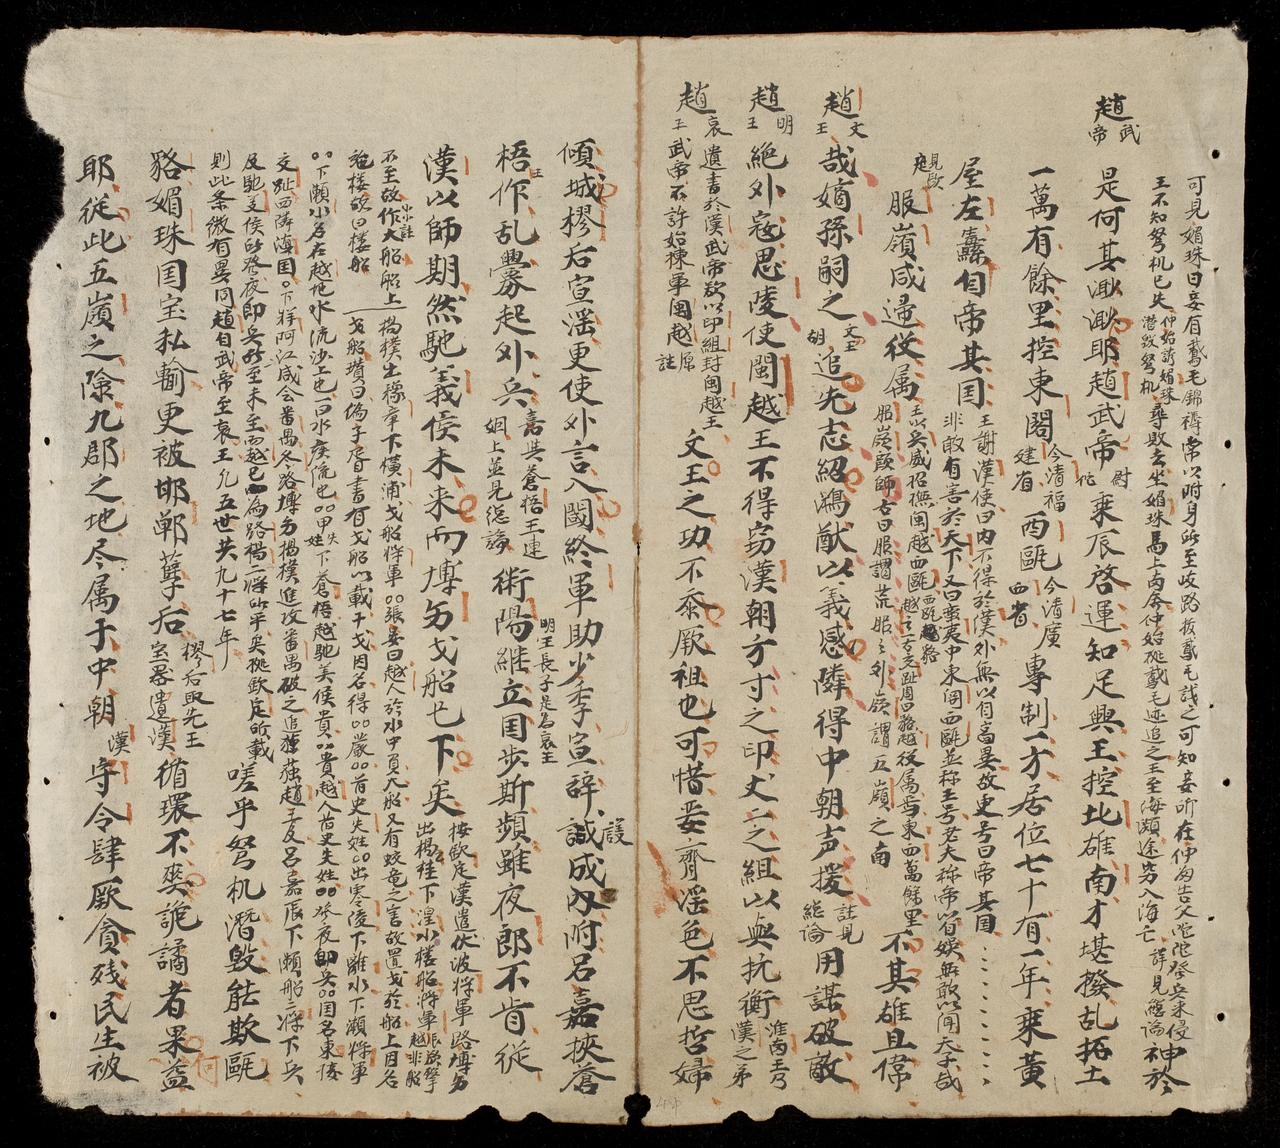 可見媚珠曰妾有鵞毛錦褥常以附身所至岐路拔鵞毛誌之可知妾所在仲始告父陀陀發兵来侵
王不知弩机已失仲始誘媚珠潜改弩机尋敗去坐媚珠馬上向奔仲始跡鵞毛迹追之王至海瀕途穷入海亡詳見總論神於
趙武帝是何其渺渺耶趙武帝尉佗乘辰啓運知足興王控北雄南才堪撥乱拓土
一萬有餘里控東閣今清福建省西甌今清廣西省專制一方居位七十有一年乘黃
屋左纛自帝其国王謝漢使曰内不得於漢外無以自高異故更号曰帝其国
非敢有害於天下又曰蛮夷中東閩西甌並称王号老夫称帝以自娛無敢以聞天子哉
見歐史服嶺咸歸役属王以兵威招撫閩越西甌役属焉東西萬餘里
服嶺顔師古曰服謂荒服之外嶺謂五嶺之南不其雄且偉
趙文王哉嫡孫嗣之文王胡追先志紹鴻猷以義感隣得中朝声援註見總論用謀破敵
趙明王絶外寇思陵使閩越王不得窃漢朝方寸之印丈二之組以與抗衡淮南王乃漢之弟
趙哀王遺書於漢武帝欲以印組封閩越王
武帝不許始棟軍閩越原註文王之功不忝厥祖也可惜妾齊滛色不思哲婦
傾城樛后宣滛更使外言入閫終軍助少季宣辞識護成内附呂嘉挾蒼
梧王作乱釁起外兵嘉與蒼梧王連姻上並見總論術陽明王長子是為哀王継立国步斯頻雖夜郎不肯従
漢以師期然馳義侯未来而博多戈船已下矣按歐定漢遣伏波將軍路博多
出桂下湟水樓船將軍
不至故作大船船上
施楼故曰楼船
楊樸出豫章下横浦戈船將軍張晏曰越人於水中負人船又有蛟竜之害故置戈於船上因名
戈船瓚曰伍子胥書有戈船以載干戈因名得嚴前史失姓出零陵下離水下瀬將軍
下瀬水名在越他水流沙上也曰水疾流也甲失姓下蒼梧越馳義侯貴越人前史失姓發夜郎兵国名東接
交趾西隣滇国下牂牁江咸会番禺冬路博多楊樸進攻番禺破之追獲趙王及呂嘉下瀬船二將下兵
及馳義侯所發夜郎兵所至未至而越已為路楊二將所平矣
則此条微有異同趙自武帝至哀王凡五世共九十七年嗟乎弩机潜毁能欺甌
貉媚珠国宝私輸更被邯鄲孽后樛后取先王宝器遺漢循環不爽詭譎者果何益
耶従此五嶺之険九郡之地尽属于中朝漢守令肆厥貪残民生被